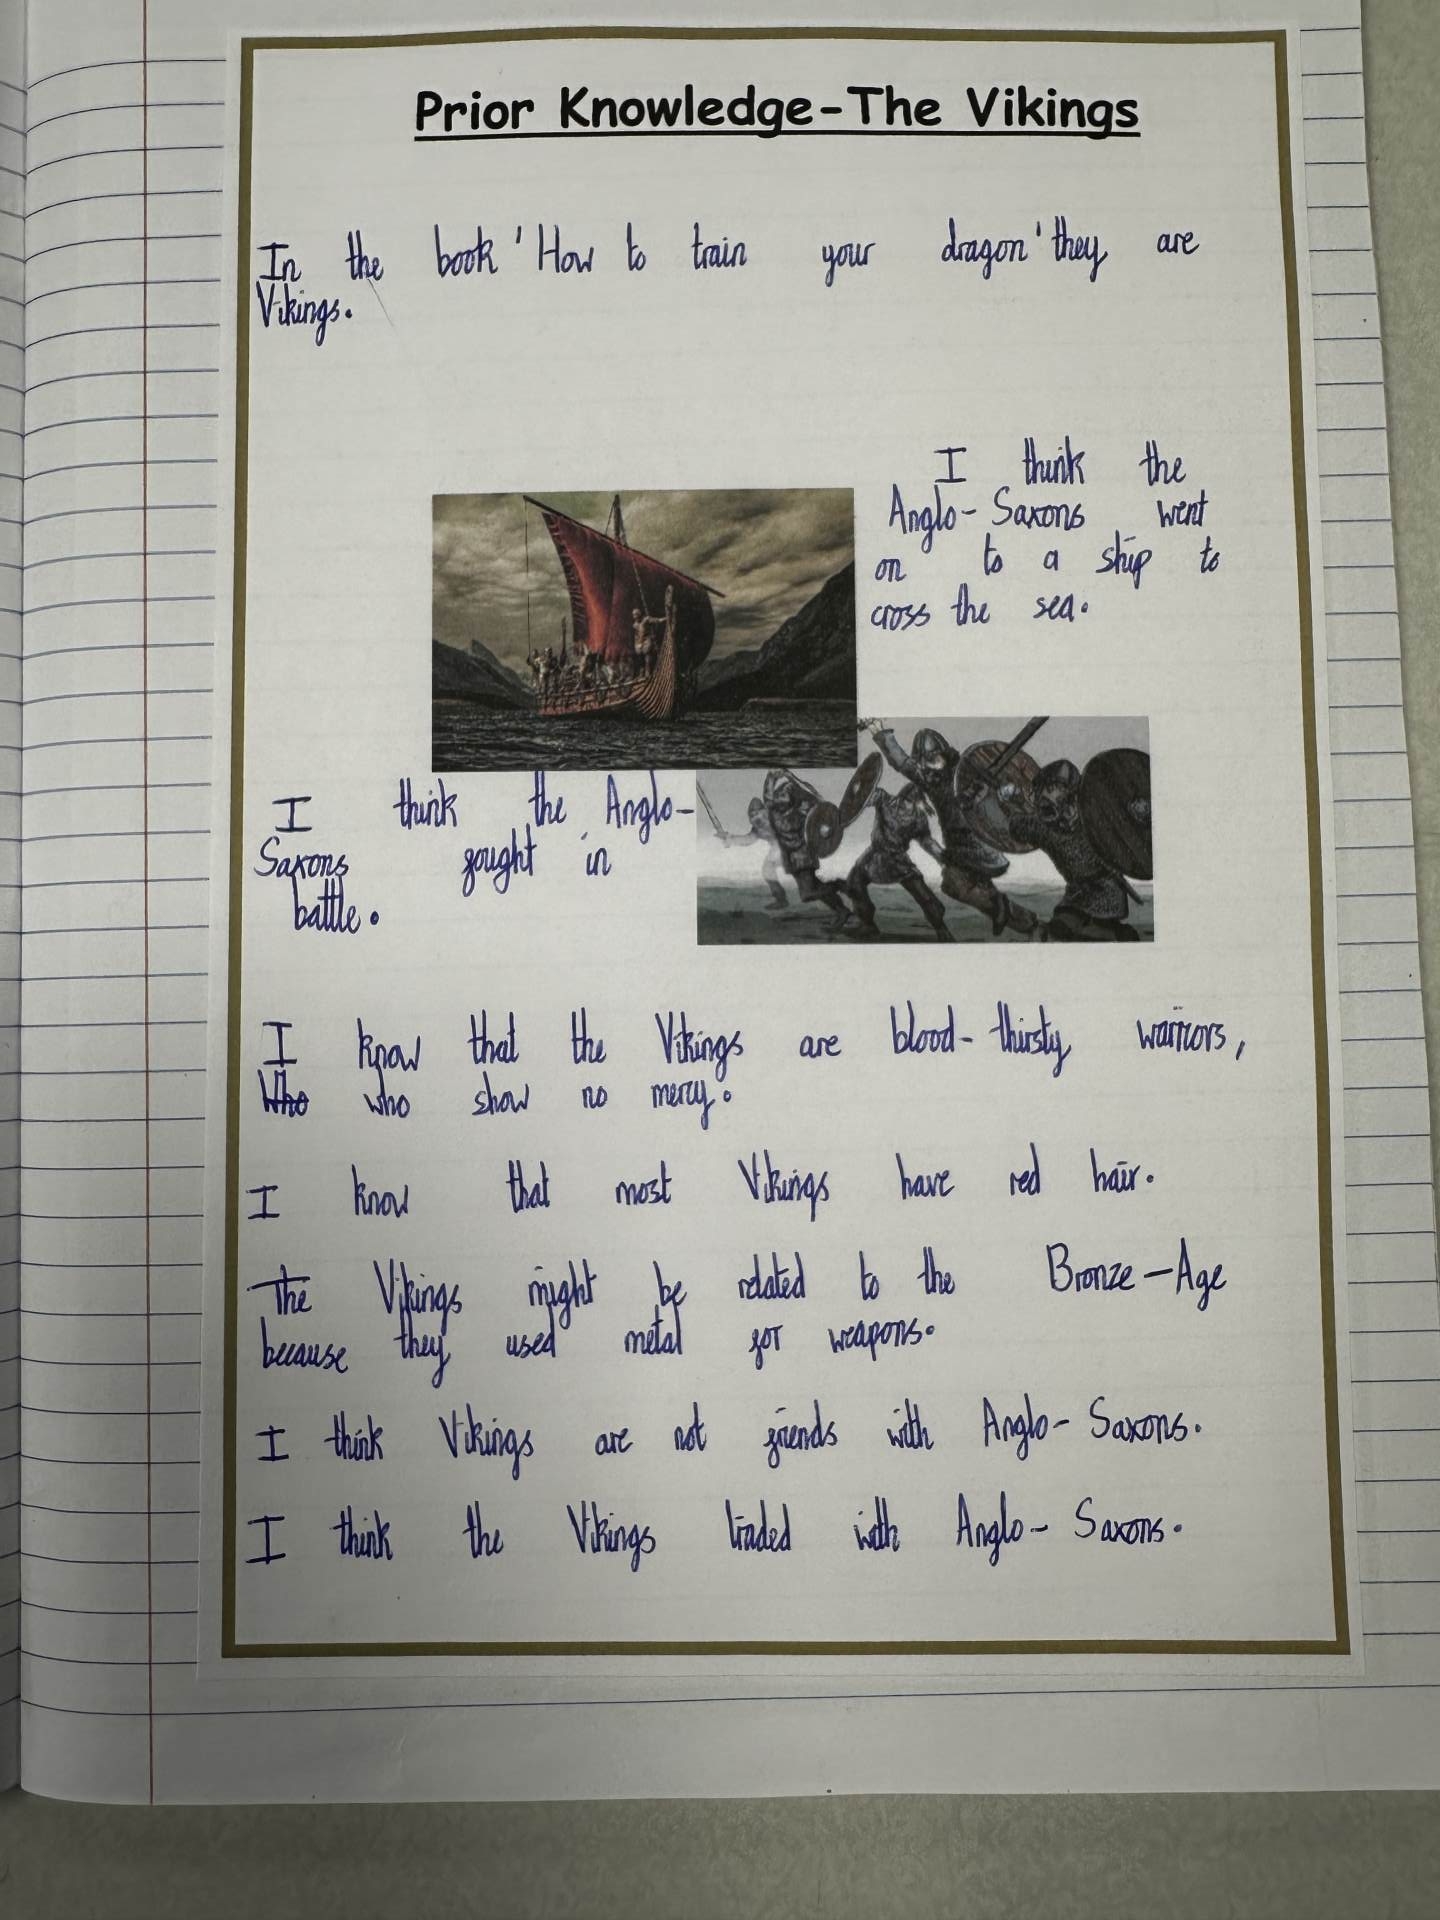 Prior Knowledge-The Vikings
In the book 'How to train your dragon' they are
Vikings.
I think the
Anglo-Saxons went
on to a ship to
cross the sea.
I think the Anglo-
Saxons fought in
battle.
I know that the Vikings are blood-thirsty warriors,
Who who show no mercy.
I know that most Vikings have red hair.
The Vikings might be related to the Bronze-Age
because they used metal for weapons.
I think Vikings are not friends with Anglo-Saxons.
I think the Vikings traded with Anglo-Saxons.